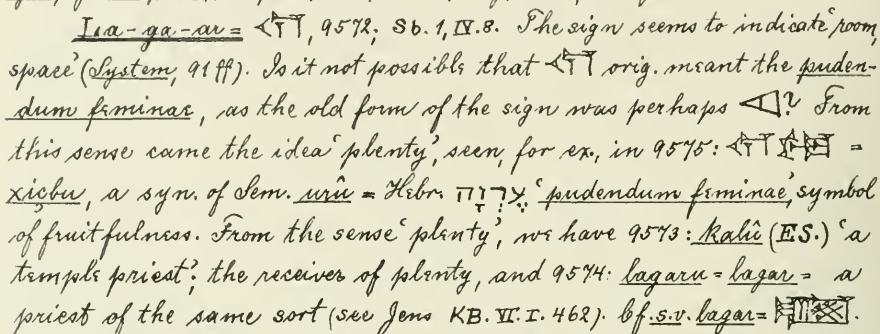 La-ga-ar = 𒇬, 9572; Sb. 1, IV. 8. The sign seems to indicate 'room,
space' (System, 91 ff). Is it not possible that 𒇬 orig. meant the puden-
dum feminae, as the old form of the sign was perhaps ? From
this sense came the idea 'plenty', seen, for ex., in 9575: 𒇬 =
xiçbu, a syn. of Sem. urû = Hebr. עֶרְוָה 'pudendum feminae', symbol
of fruitfulness. From the sense 'plenty', we have 9573: kalû (ES.) 'a
temple priest'; the receiver of plenty, and 9574: lagaru = lagar = a
priest of the same sort (see Jens KB. VI. I. 462). Cf. s.v. lagar = .